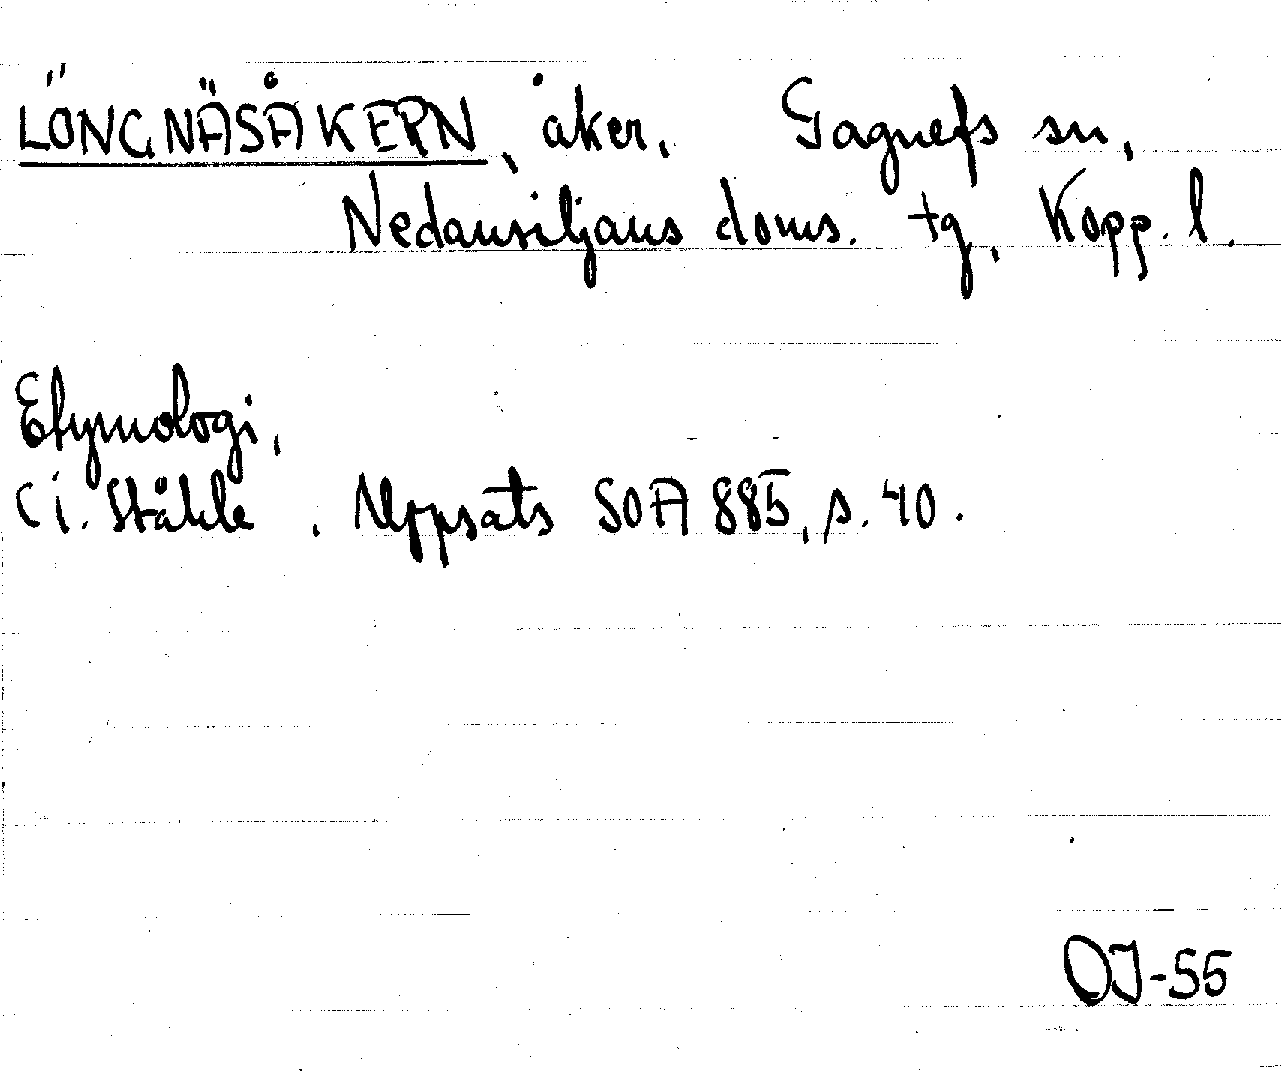 LÖNGNÄSÅKERN, åker. Gagnefs sn,
Nedansiljans doms. tg, Kopp. l.
Etymologi.
C i. Ståhle. Uppsats SOA 885, s. 40.
OJ-55